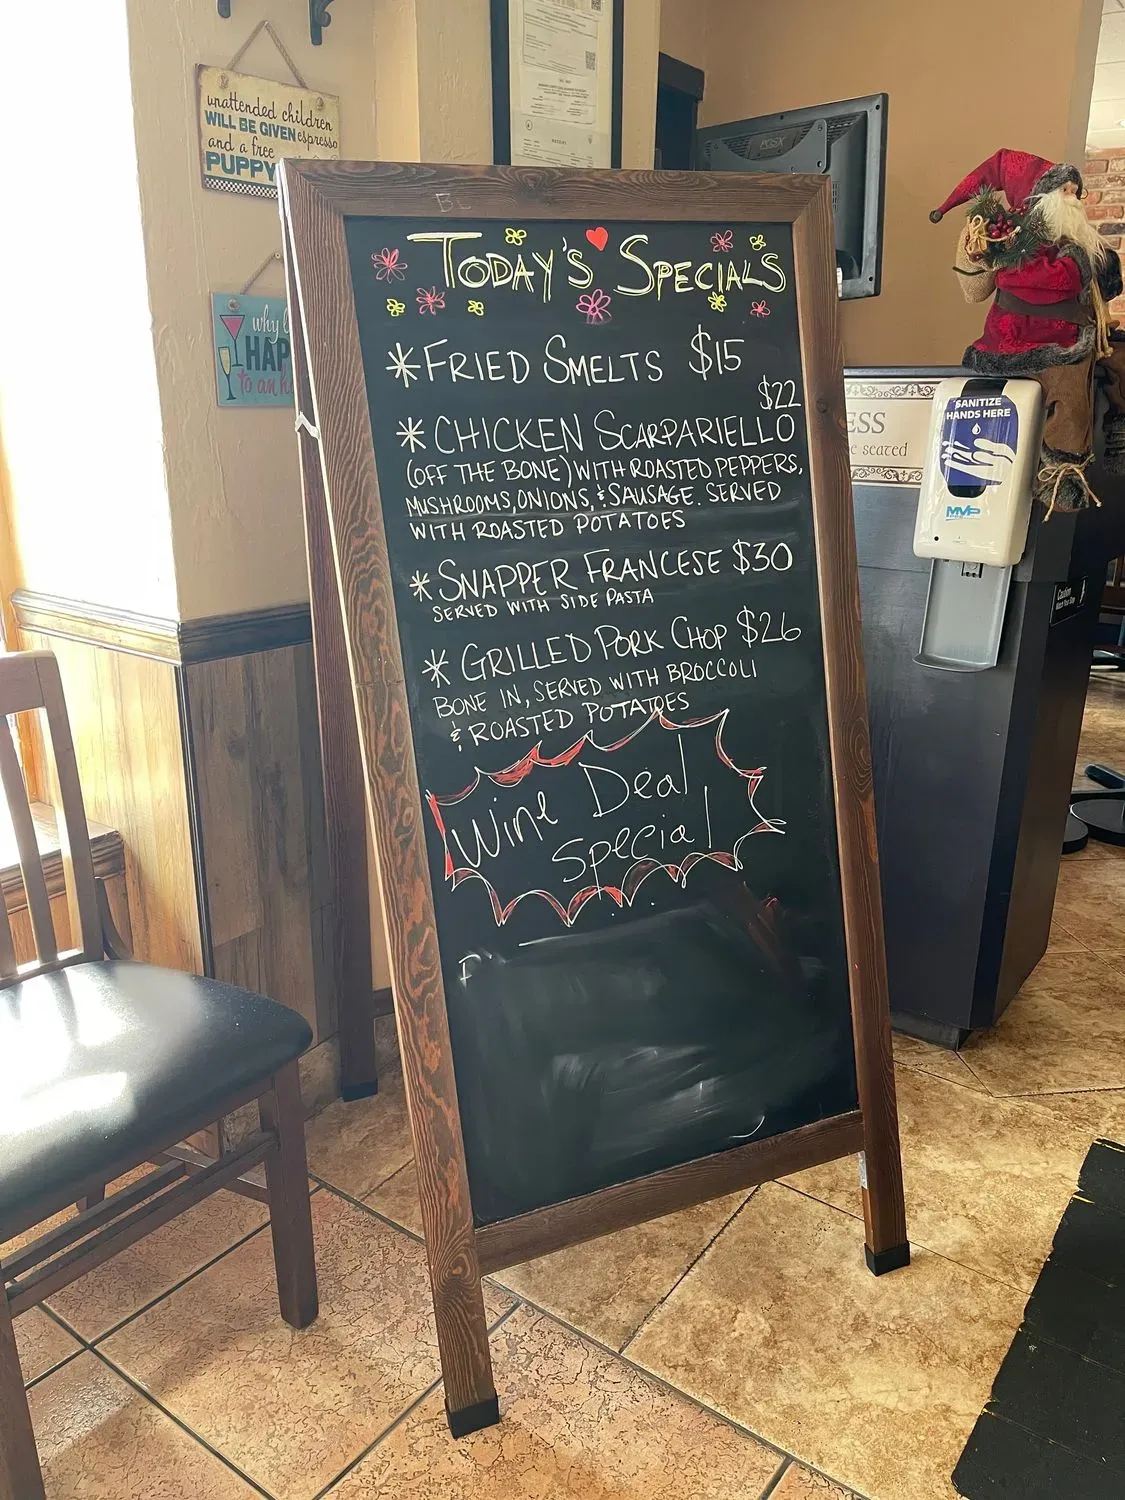 unattended children
WILL BE GIVEN espresso
and a free
PUPPY
why l
HAP
to an h
TODAY'S SPECIALS
*FRIED SMELTS $15
$22
*CHICKEN SCARPARIELLO
(OFF THE BONE) WITH ROASTED PEPPERS,
MUSHROOMS, ONIONS, & SAUSAGE. SERVED
WITH ROASTED POTATOES
*SNAPPER FRANCESE $30
SERVED WITH SIDE PASTA
*GRILLED PORK CHOP $26
BONE IN, SERVED WITH BROCCOLI
& ROASTED POTATOES
Wine Deal
Special
ESS
be seated
SANITIZE
HANDS HERE
MVP
Caution
Watch Your Step